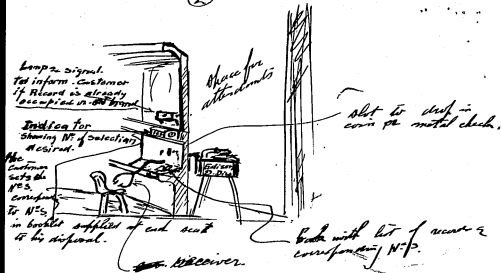 2
Lamp & signal
to inform Customer
if Record is already
occupied
Indicator
showing Nº of selection
desired.
the
Customer
sets the
Nºs.
to Nºs.
in booklet supplied at each seat
to his disposal.
Receiver
space for
attendants
Edison
slot to drop in
coin or metal check.
Book with list of records &
corresponding Nºs.